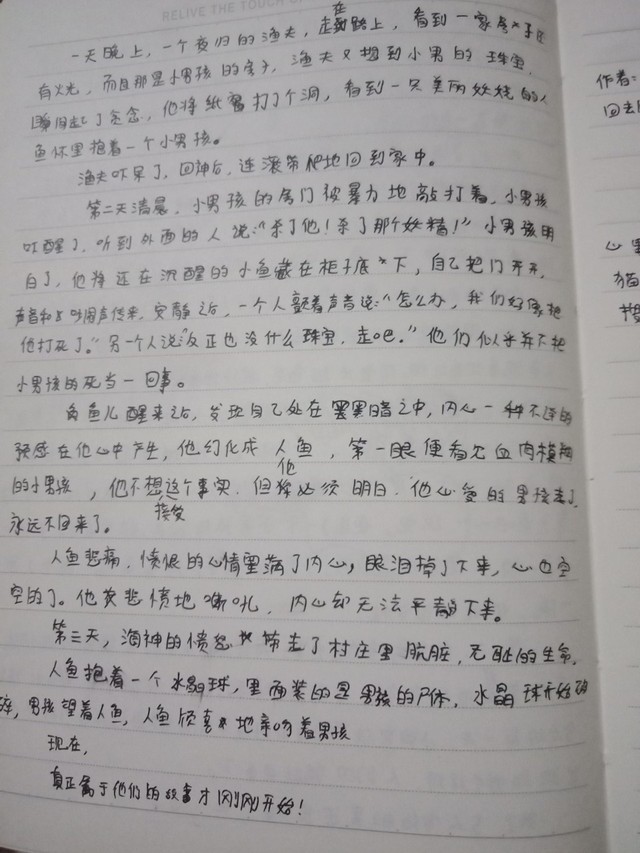 RELIVE THE TOUCH OF
一天晚上，一个夜归的渔夫，走在路上，看到一家房子还
有火光，而且那是小男孩的房子，渔夫又想到小男的珠宝，
起了贪念，他将纸窗打了个洞，看到一只美丽妖娆的人
鱼怀里抱着一个小男孩。
渔夫吓呆了，回神后，连滚带爬地回到家中。
第二天清晨，小男孩的房门被暴力地敲打着，小男孩
吓醒了，听到外面的人说："杀了他！杀了那个妖精！"小男孩明
白了，他将还在沉醒的小鱼藏在柜子底下，自己把门开开，
声音和 声传来，安静之后，一个人颤着声音说："怎么办，我们好像把
他打死了。"另一个人说："反正也没什么珠宝，走吧。"他们似乎并不把
小男孩的死当一回事。
鱼儿醒来之后，发现自己处在黑暗之中，内心一种不详的
预感在他心中产生，他幻化成人鱼，第一眼便看见血肉模糊
的小男孩，他不想接受这个事实，但他必须明白，他心爱的男孩走了，
永远不回来了。
人鱼悲痛，愤恨的心情塞满了内心，眼泪掉了下来，心也空
空的了。他悲愤地嘶吼，内心却无法平静下来。
第三天，海神的愤怒带走了村庄里肮脏，无耻的生命，
人鱼抱着一个水晶球，里面装的是男孩的尸体，水晶球开始破
碎，男孩望着人鱼，人鱼欣喜地亲吻着男孩
现在，
真正属于他们的故事才刚刚开始！
作者：
回去
心里
猫